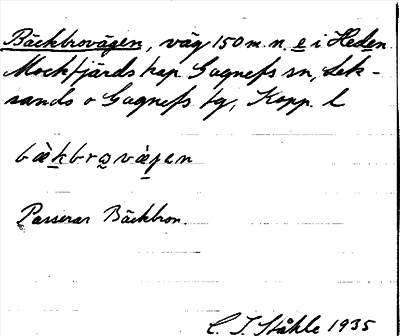 Bäckbrovägen, väg 150 m. n. e i Heden
Mockfjärds kap. Gagnefs sn, Lek-
sands o Gagnefs tg, Kopp. l
bäkbrovägen
Passerar Bäckbron.
C. I. Ståhle 1935